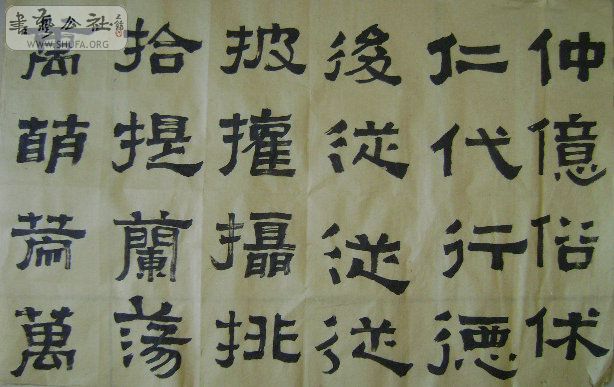 仲億俗休
仁代行德
後従従従
披攝挑
拾提蘭蕩
萬萌萬
書藝公社
WWW.SHUFA.ORG